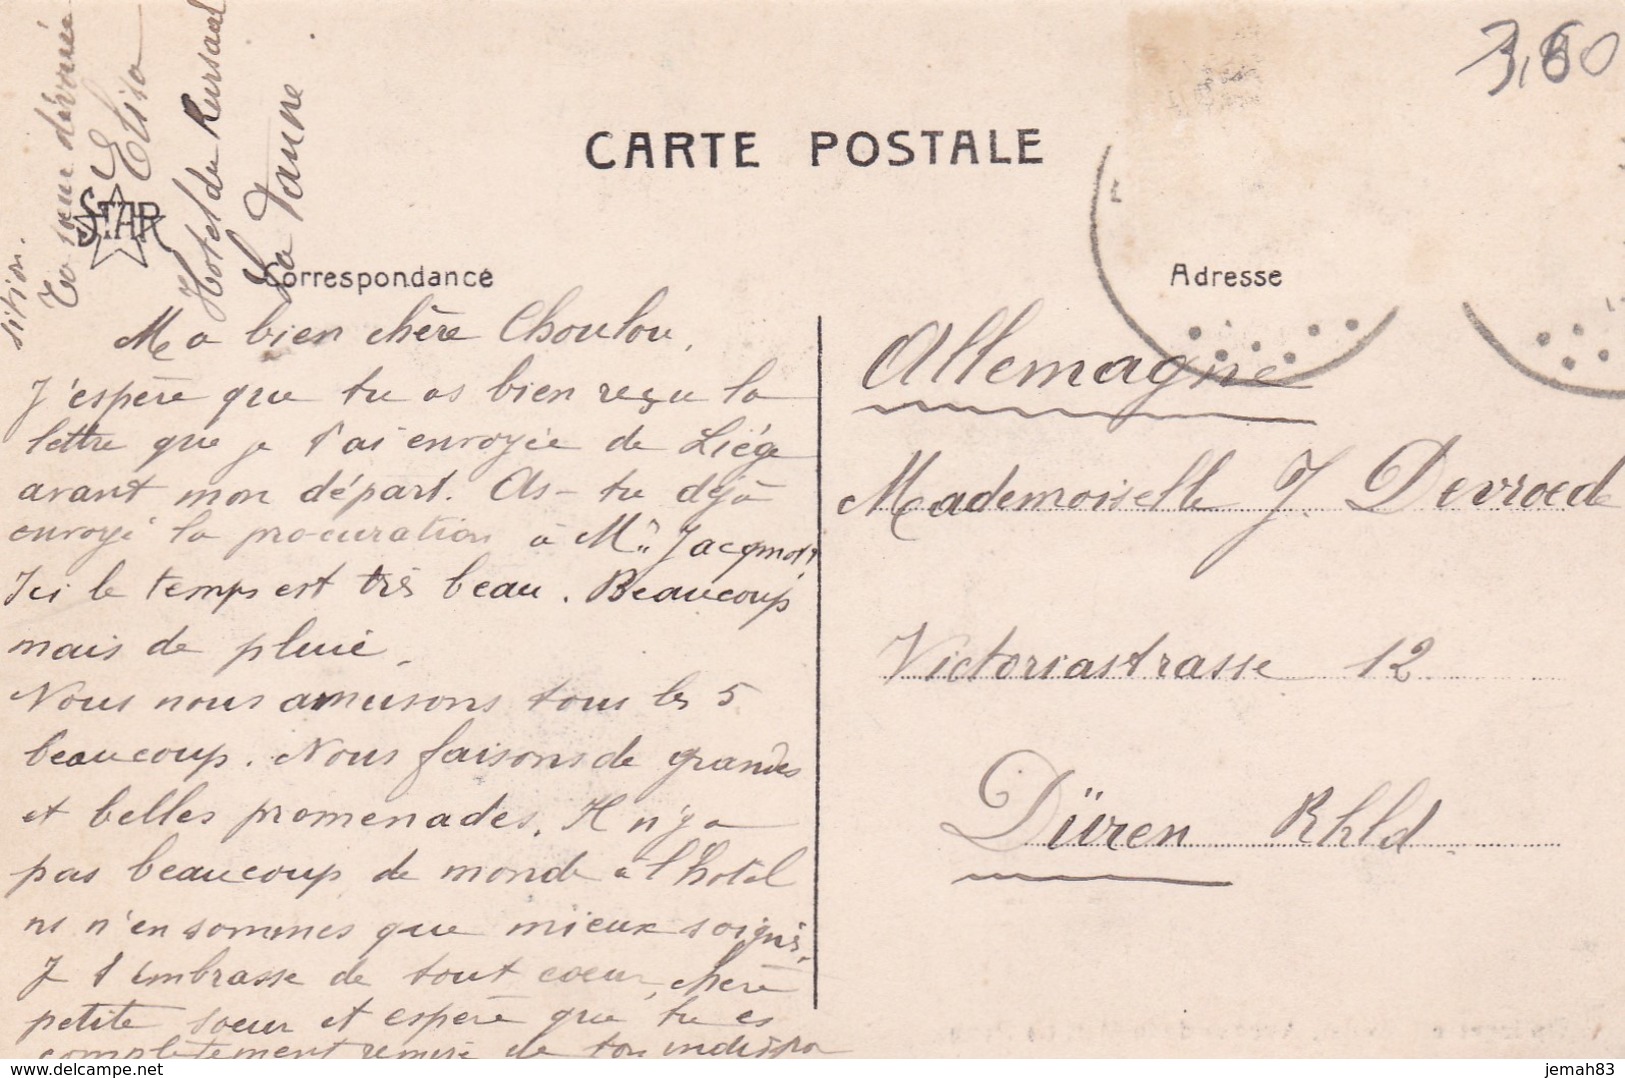 3,60
CARTE POSTALE
STAR
Correspondance
Adresse
Ma bien chère Choulou,
J'espère que tu as bien reçu la
lettre que je t'ai envoyée de Liége
avant mon départ. As-tu déjà
envoyé la procuration à Mr Jacqmot?
Ici le temps est très beau. Beaucoup
mais de pluie.
Nous nous amusons tous les 5
beaucoup. Nous faisons de grandes
et belles promenades. Il n'y a
pas beaucoup de monde à l'hôtel
ns n'en sommes que mieux soignés.
Je t'embrasse de tout coeur, chère
petite soeur et espère que tu es
complètement remise de ton indispo
sition.
Ta soeur dévouée
Elisa
Hotel du Kursaal
La Panne
Allemagne
Mademoiselle J. Devroede
Victoriastrasse 12
Düren Rhld.
delcampe.net
jemah83